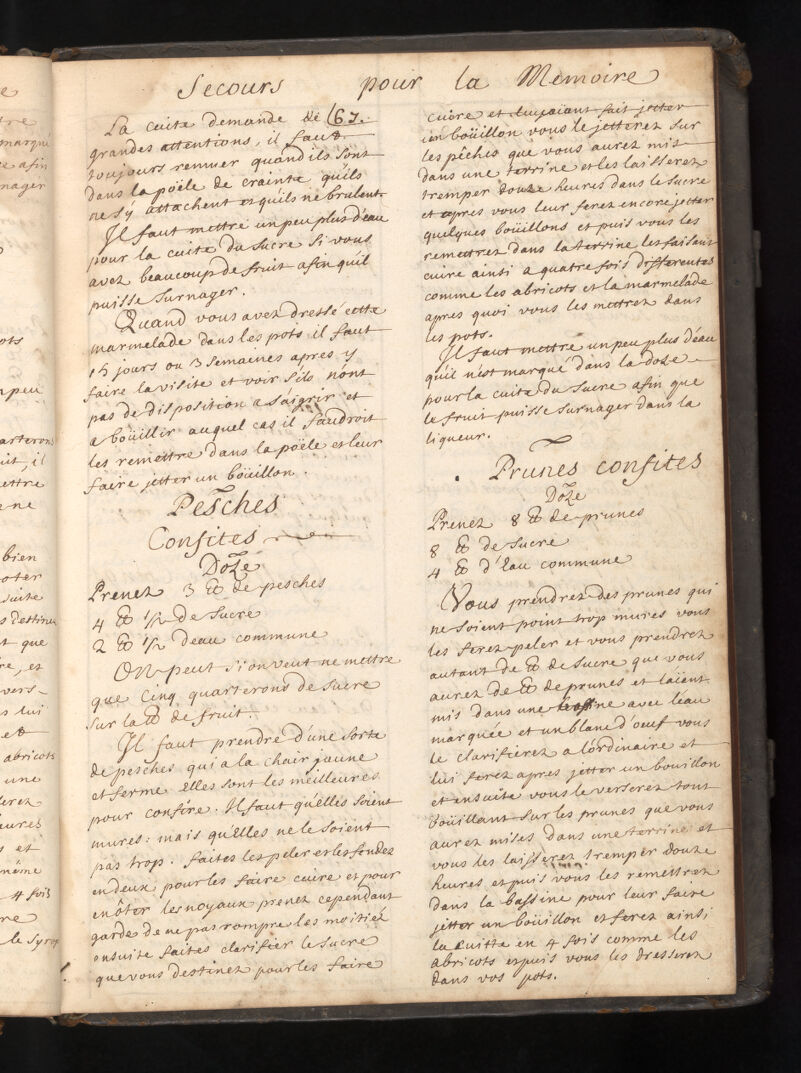 Secours pour la Memoire
67.
La cuite demande de
grandes attentions, il faut
toujours remuer quand ils sont
dans la poële de crainte qu'ils
ne s'y attachent et qu'ils ne brulent
Il faut mettre un peu plus d'eau
pour la cuite du sucre si vous
avez beaucoup de fruit afin qu'il
puisse surnager.
Quand vous avez dressé cette
marmelade dans les pots il faut
15 jours ou 3 semaines apres y
faire la visite et voir s'ils n'ont
pas de disposition a s'aigrir et
a boüillir auquel cas il faudroit
les remettre dans la poële et leur
faire jetter un boüillon.
Pesches
Confites
Doze
Prenez 3 ℔ de pesches
4 ℔ 1/2 de sucre
2 ℔ 1/2 d'eau commune
On peut si on veut ne mettre
que cinq quarterons de sucre
sur la ℔ de fruit.
Il faut prendre d'une sorte
de pesches qui a la chair jaune
et ferme elles sont les meilleures
pour confire. Il faut qu'elles soient
mures: mais qu'elles ne le soient
pas trop. faites les peler et les fendez
en deux pour les faire cuire et pour
en ôter les noyaux prenez cependant
garde de ne pas rompre les moitiez
ensuite faites clarifier le sucre
que vous destinez pour les faire
cuire et luy aiant fait jetter
un boüillon vous le jetterez sur
les pêches que vous aurez mis
dans une terrine et les laisserez
tremper douze heures dans le sucre
et apres vous leur ferez encore jetter
quelques boüillons et puis vous les
remettrez dans la terrine les faisant
cuire ainsi a quatre fois differentes
comme les abricots et la marmelade
apres quoi vous les mettrez dans
les pots.
Il faut mettre un peu plus d'eau
qu'il n'est marqué dans la doze
pour la cuite du sucre afin que
le fruit puisse surnager dans la
liqueur.
Prunes confites
Doze
Prenez 8 ℔ de prunes
8 ℔ de sucre
4 ℔ d'eau commune
Vous prendrez des prunes qui
ne soient point trop mures vous
les ferez peler et vous prendrez
autant de ℔ de sucre que vous
aurez de ℔ de prunes et l'aïent
mis dans une avec l'eau
marquée et un blanc d'oeuf vous
le clarifierez a l'ordinaire et
lui ferez apres jetter un boüillon
et ensuite vous le verserez tout
boüillant sur les prunes que vous
aurez mises dans une terrine et
vous les laisserez tremper douze
heures et puis vous les remettrez
dans la bassine pour leur faire
jetter un boüillon et ferez ainsi
la cuitte en 4 fois comme les
abricots et puis vous les dresserez
dans vos pots.